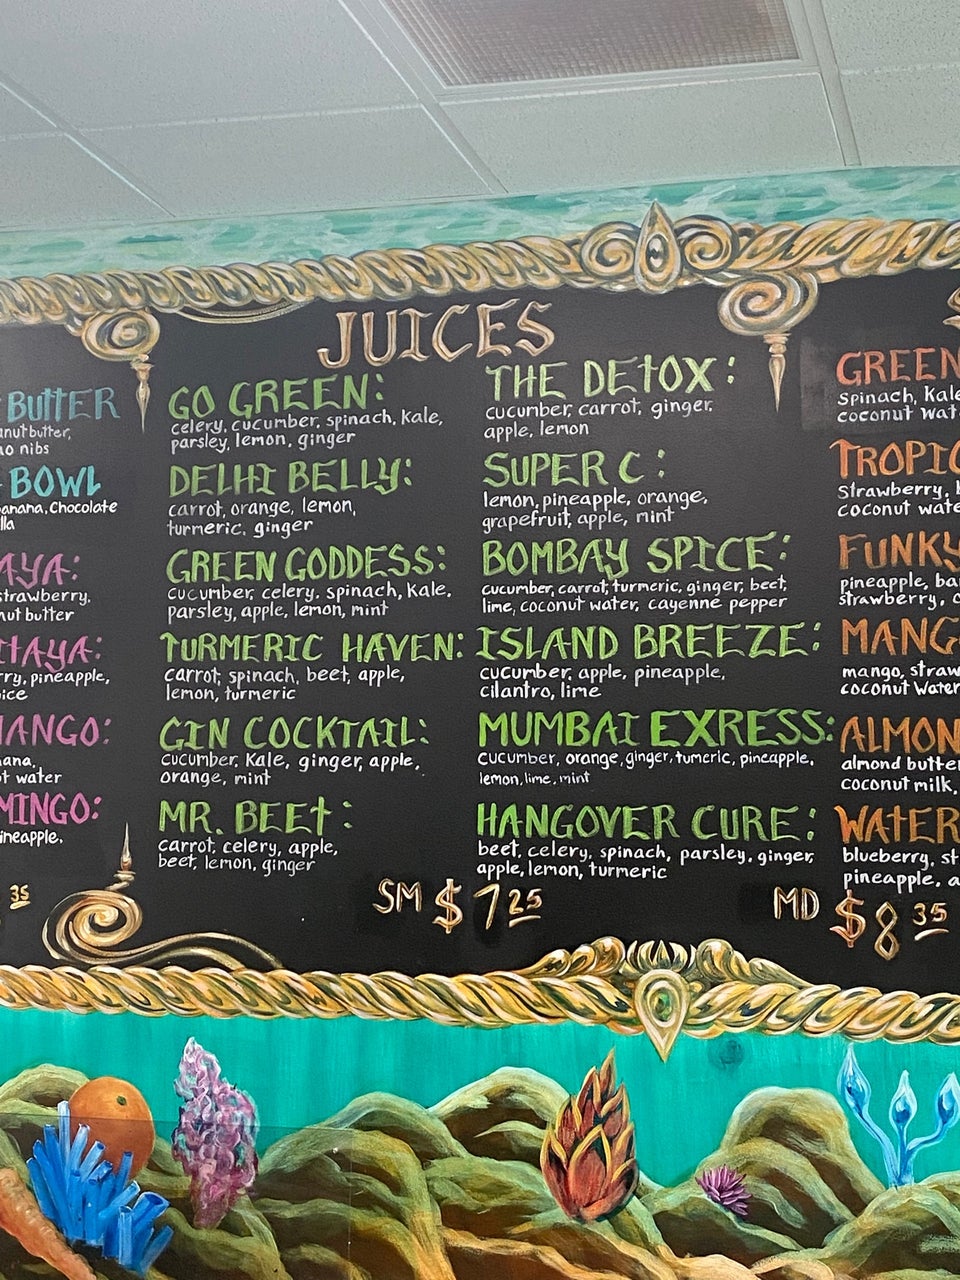 BUTTER
nut butter,
nibs
BOWL
banana, chocolate
AYA:
strawberry,
nut butter
ITAYA:
pineapple,
MANGO:
water
MINGO:
pineapple,
35
JUICES
GO GREEN:
celery, cucumber, spinach, kale,
parsley, lemon, ginger
DELHI BELLY:
carrot, orange, lemon,
turmeric, ginger
GREEN GODDESS:
cucumber, celery, spinach, kale,
parsley, apple, lemon, mint
TURMERIC HAVEN:
carrot, spinach, beet, apple,
lemon, turmeric
GIN COCKTAIL:
cucumber, kale, ginger, apple,
orange, mint
MR. BEET:
carrot, celery, apple,
beet, lemon, ginger
THE DETOX:
cucumber, carrot, ginger,
apple, lemon
SUPER C:
lemon, pineapple, orange,
grapefruit, apple, mint
BOMBAY SPICE:
cucumber, carrot, turmeric, ginger, beet,
lime, coconut water, cayenne pepper
ISLAND BREEZE:
cucumber, apple, pineapple,
cilantro, lime
MUMBAI EXRESS:
cucumber, orange, ginger, tumeric, pineapple,
lemon, lime, mint
HANGOVER CURE:
beet, celery, spinach, parsley, ginger,
apple, lemon, turmeric
SM $7 25
MD $8 35
GREEN
spinach, kale
coconut wat
TROPIC
strawberry, b
coconut wate
FUNKY
pineapple, ba
strawberry, c
MANG
mango, straw
coconut water
ALMON
almond butter
coconut milk,
WATER
blueberry, st
pineapple, a